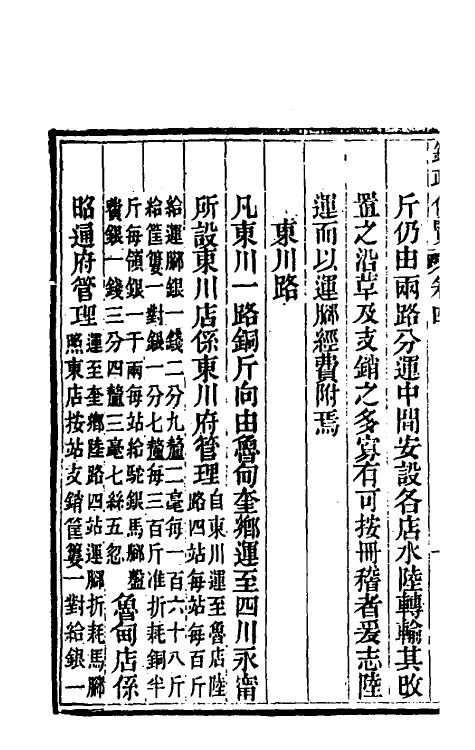 銅政便覽 卷四
斤仍由兩路分運中間安設各店水陸轉輸其改
置之沿革及支銷之多寡有可按冊稽者爰志陸
運而以運腳經費附焉
東川路
凡東川一路銅斤向由魯甸奎鄉運至四川永甯
所設東川店係東川府管理
自東川運至魯店陸
路四站每站每百斤
給運腳銀一錢二分九釐二毫每一百六十八斤
給筐簍一對銀一分七釐每三百斤准折耗銅半
斤每領銀一千兩每站給駝銀馬腳盤
費銀一錢三分四釐三毫七絲五忽
魯甸店係
昭通府管理
運至奎鄉陸路四站運腳折耗馬腳
照東店按站支銷筐簍一對給銀一